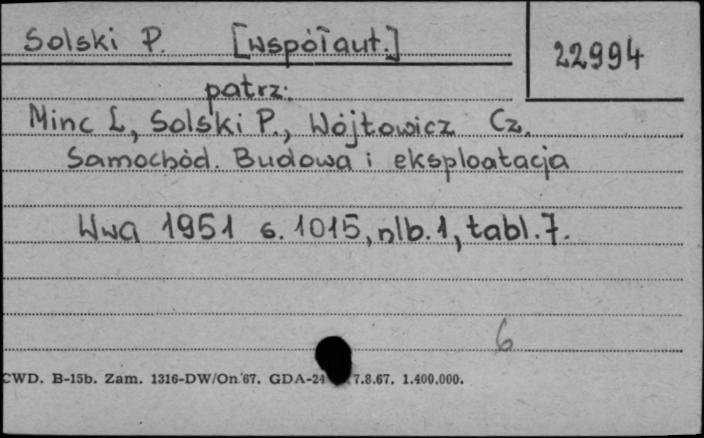 Solski P. [współaut.]
22994
patrz:
Minc Ł, Solski P., Wójtowicz Cz.
Samochód. Budowa i eksploatacja
Wwa 1951 s. 1015, nlb. 1, tabl. 7.
6
CWD. B-15b. Zam. 1316-DW/On 67. GDA-24 7.8.67. 1.400.000.